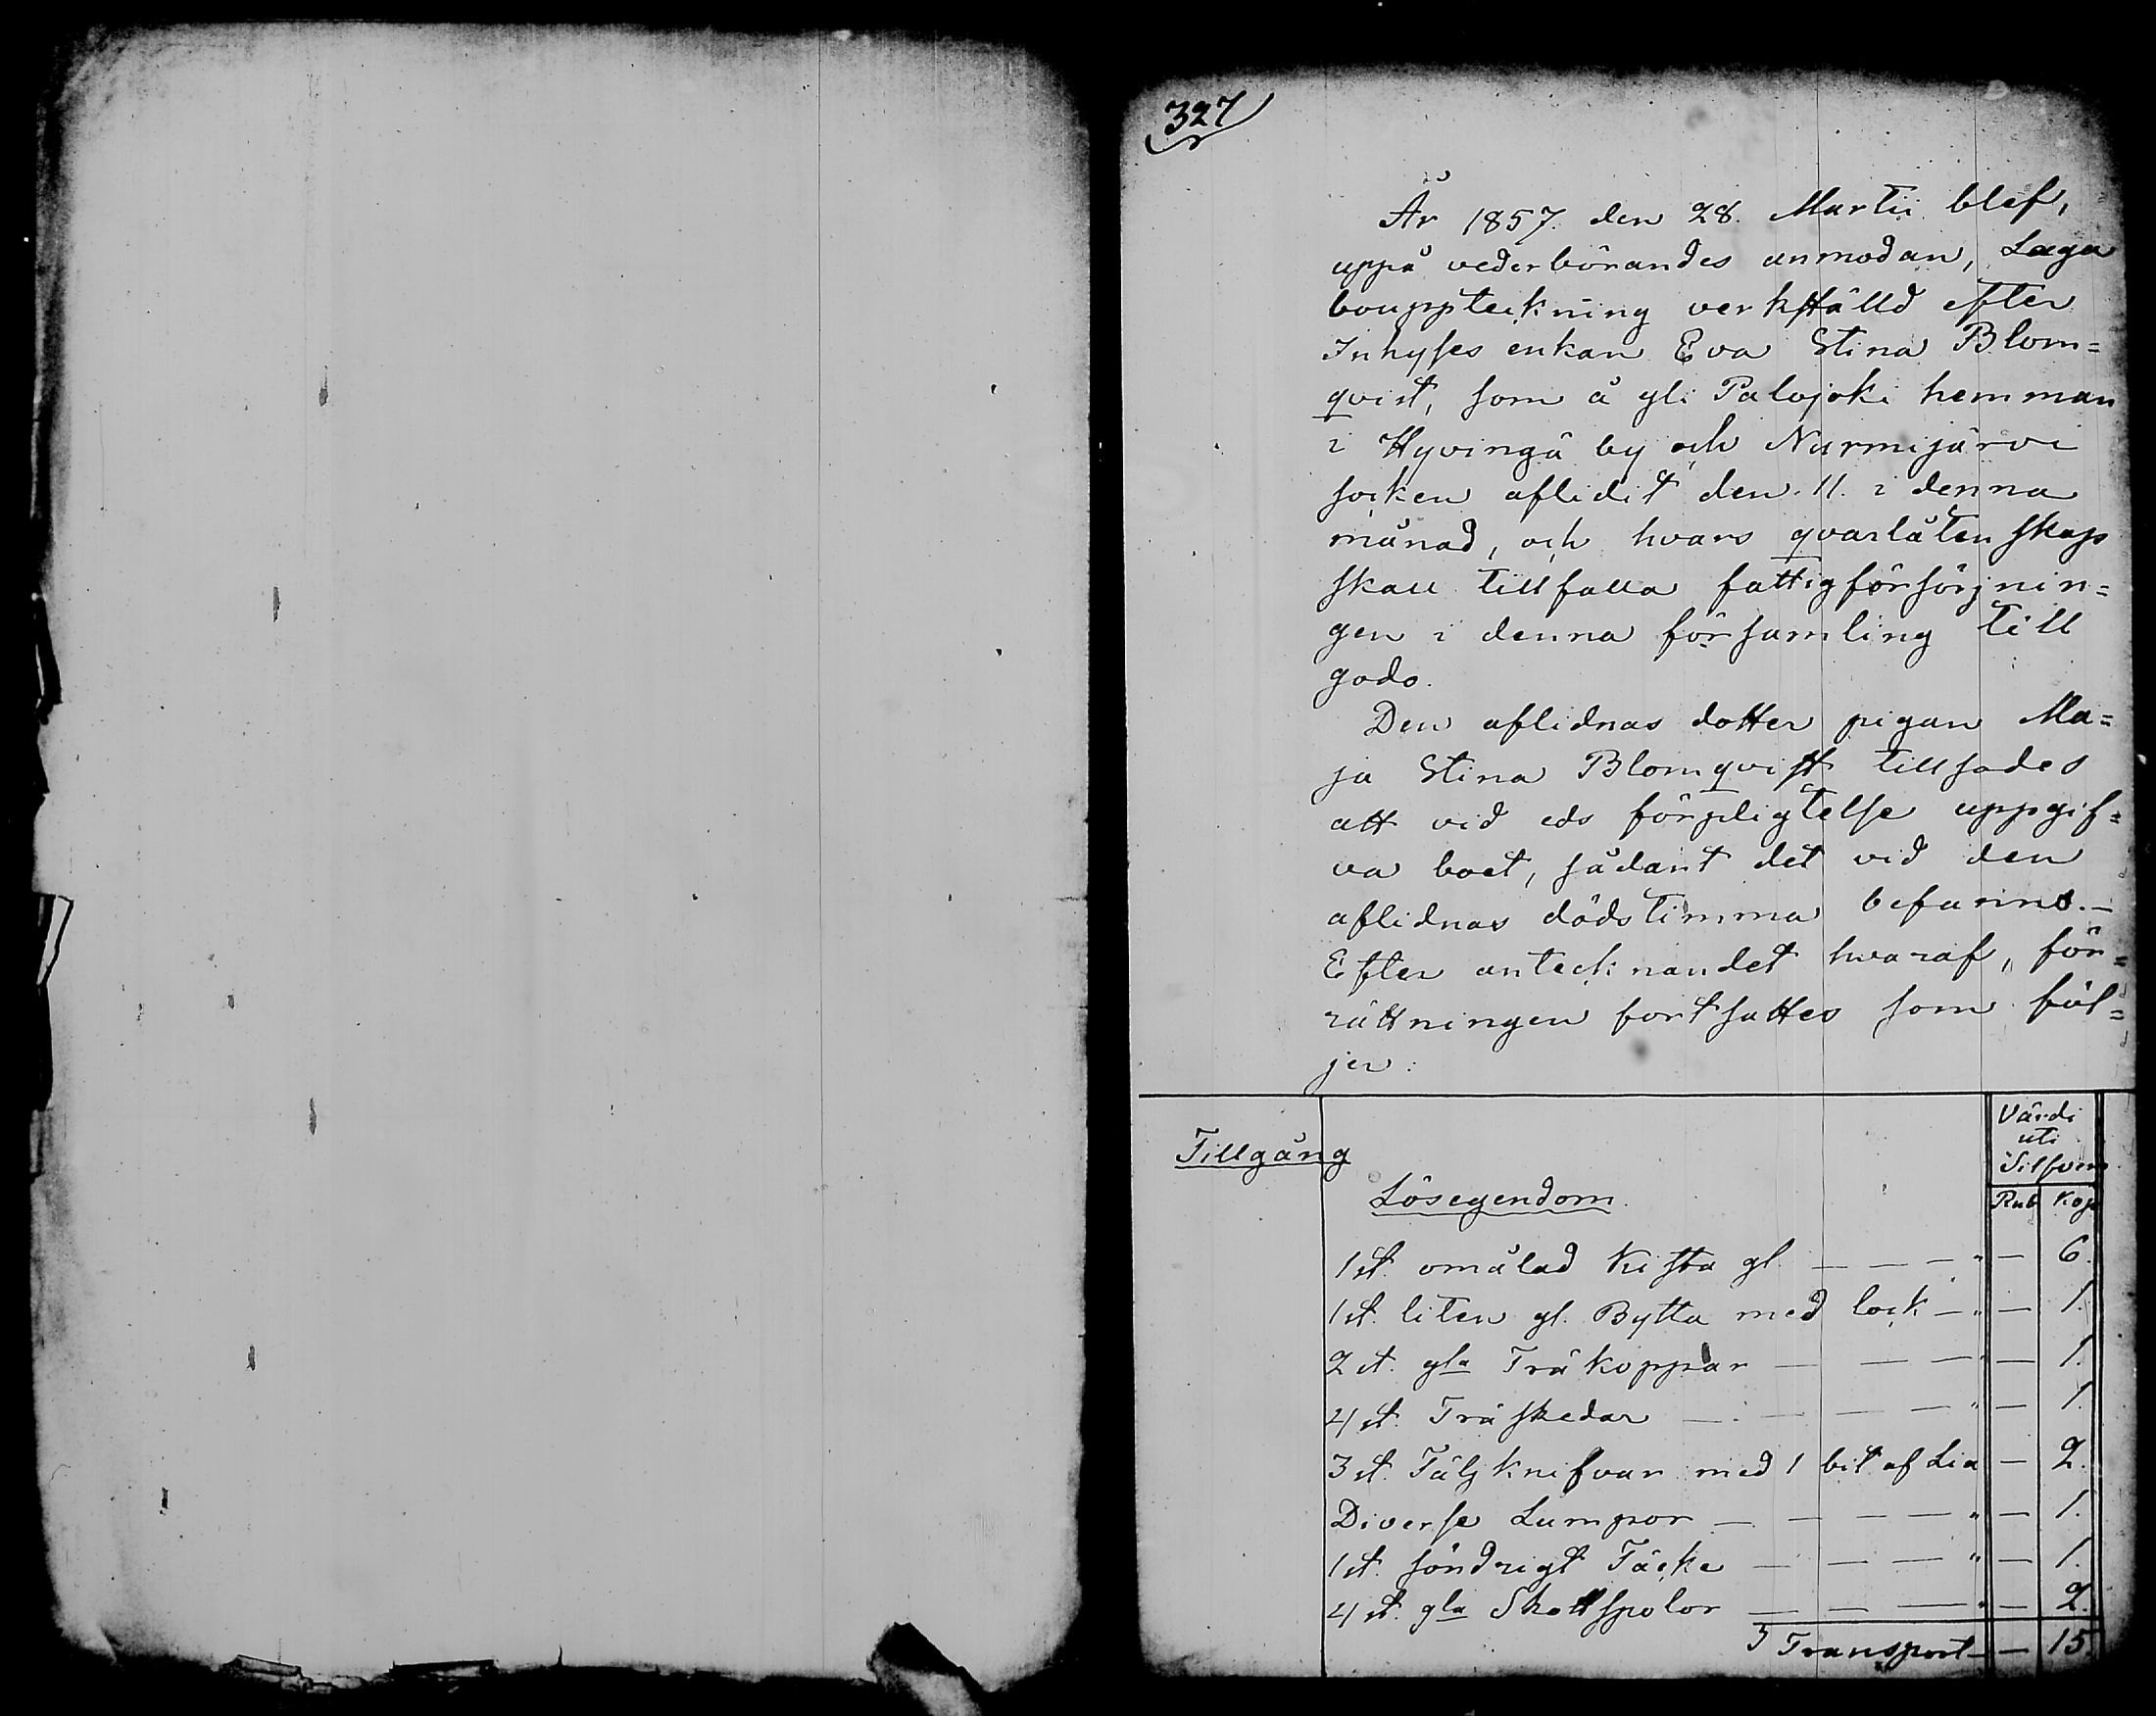 327
År 1857. den 28. Martii blef,
uppå vederbörandes anmodan, Laga
bouppteckning verkställd efter
Inhyses enkan Eva Stina Blom=
qvist, som å gli Palojoki hemman
i Hyvingä by och Nurmijärvi
socken aflidit den 11. i denna
månad, och hvars qvarlåtenskap
skall tillfalla fattigförsörjnin=
gen i denna församling till
godo.
Den aflidnas dotter pigan Ma=
ja Stina Blomqvist tillsades
att vid eds förpligtelse uppgif=
va boet, sådant det vid den
aflidnas dödstimma befanns.—
Efter antecknandet hvaraf, för=
rättningen fortsattes som föl=
jer:
Värdi
uti
Silfver
Tillgång
Lösegendom.
Rub Kop
1 st. omålad Kista gl. — — — " — 6.
1 st. liten gl. Bytta med lock — " — 1.
2 st. gla Träkoppar — — — " — 1.
4 st. Träskedar — — — — " — 1.
3 st. Täljknifvar med 1 bit af Lia — 2.
Diverse Lumpor — — — — " — 1.
1 st. söndrigt Täcke — — — " — 1.
4 st. gla Skottspolor — — — " — 2.
Transport — — 15